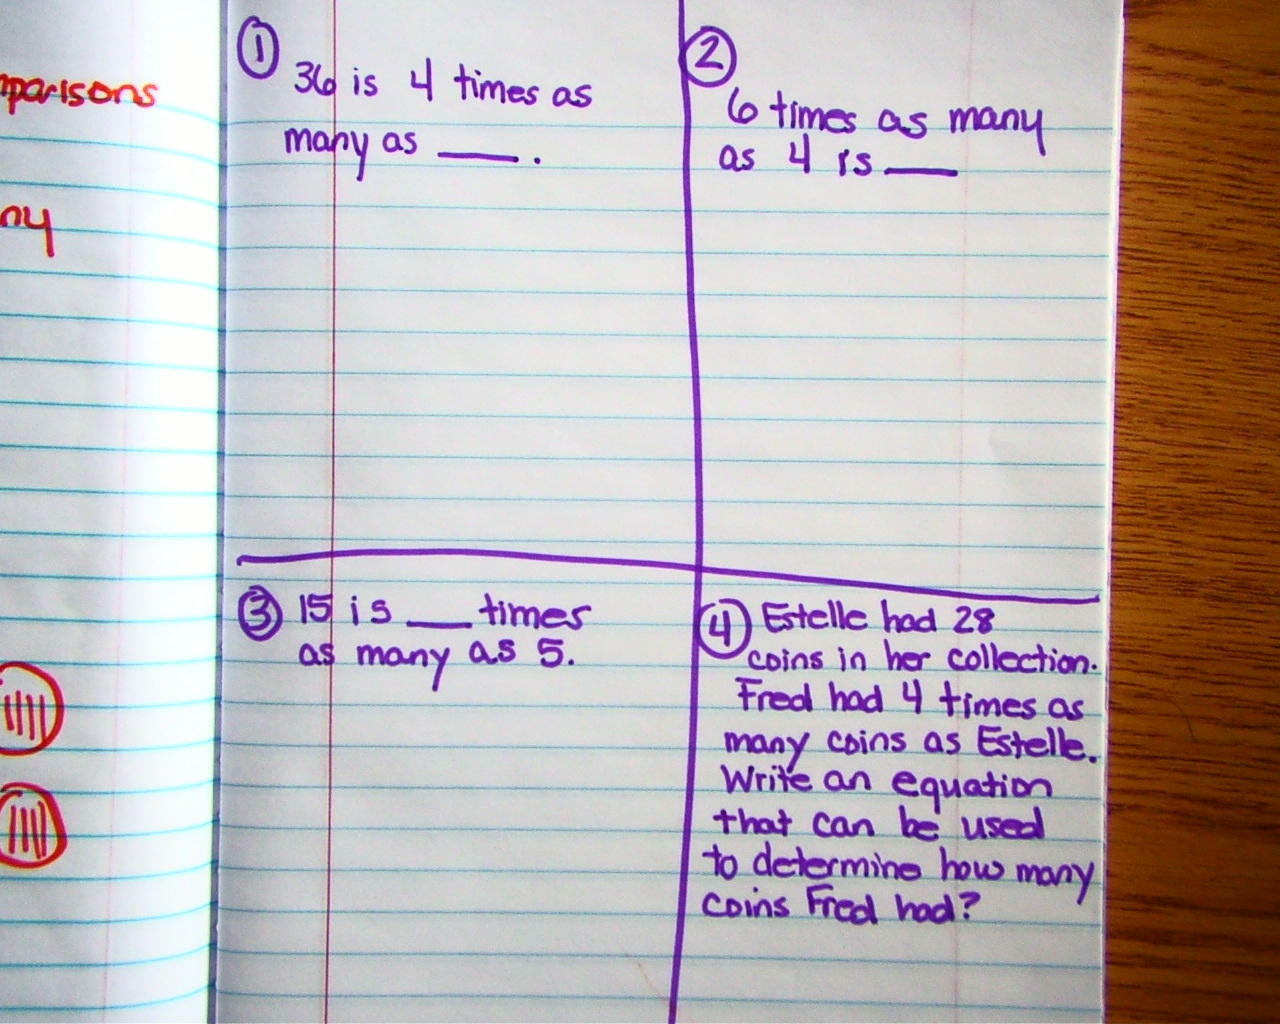 parisons
ny
①
36 is 4 times as
many as ____.
②
6 times as many
as 4 is ____
③ 15 is ___ times
as many as 5.
④ Estelle had 28
coins in her collection.
Fred had 4 times as
many coins as Estelle.
Write an equation
that can be used
to determine how many
coins Fred had?